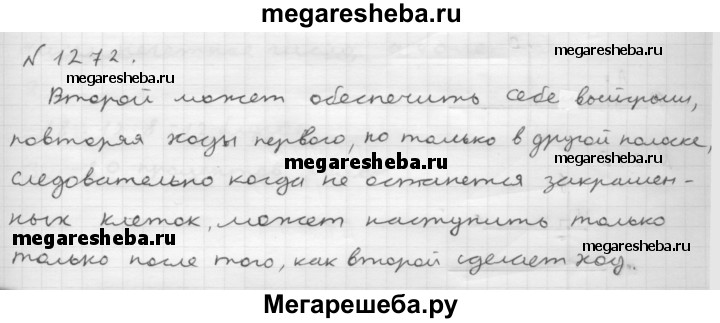 megaresheba.ru
N 1272.
megaresheba.ru
megaresheba.ru
Второй может обеспечить себе выигрыш,
повторяя ходы первого, но только в другой полоске,
megaresheba.ru
следовательно когда не останется закрашен-
ных клеток, может наступить только
megaresheba.ru
megaresheba.ru
только после того, как второй сделает ход.
Мегарешеба.ру